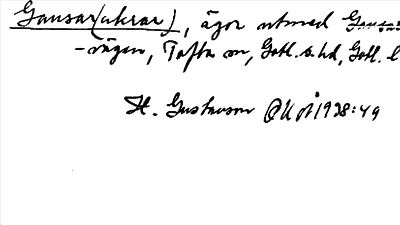 Gansar(åkrar), ägor utmed
-vägen, Tofta sn, Gotl. s. hd, Gotl. l
H. Gustavson 1938:49